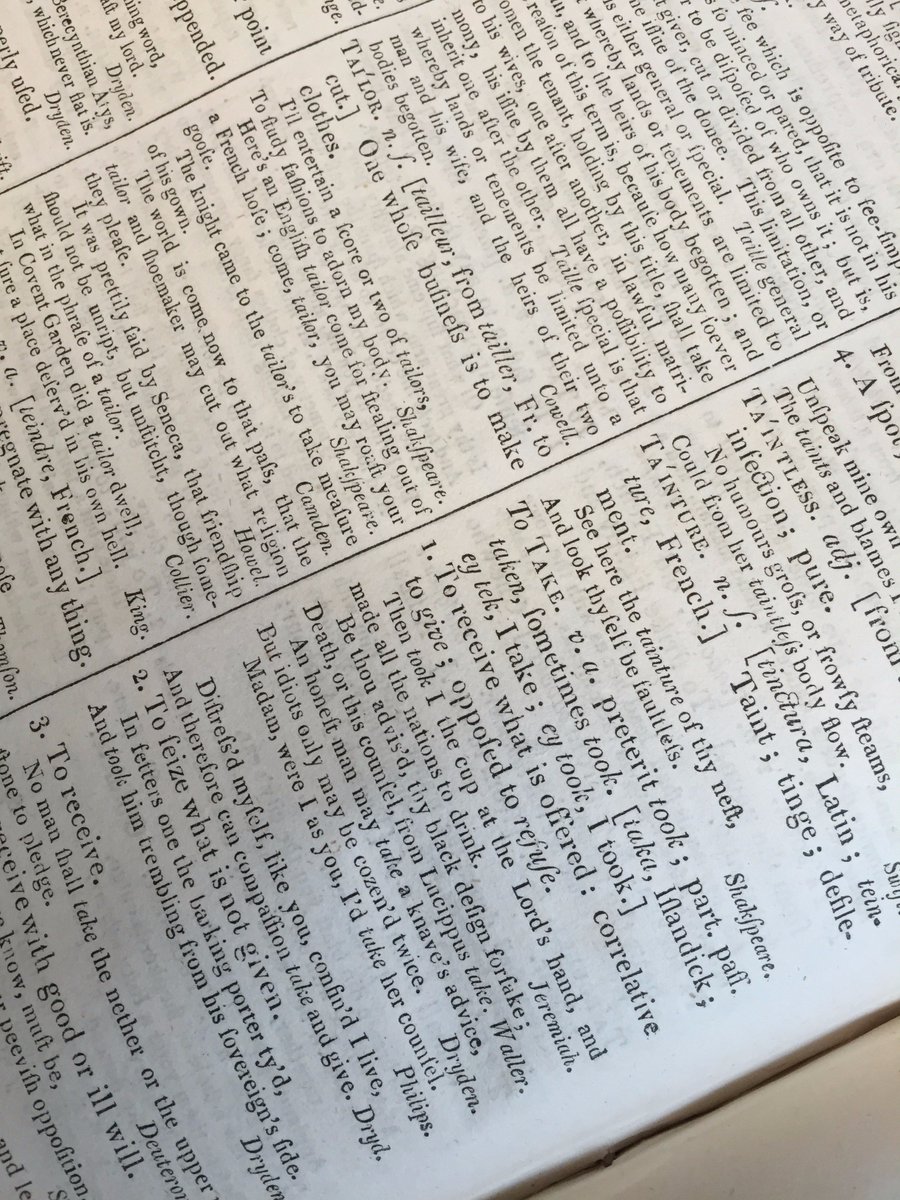 point
ppended.
ning word,
aft my lord. Dryden.
Berecynthian
which never flat is, Dryden.
merly uſed.
metaphorical
y way of tribute,
fee which is oppoſite to fee-ſimp
ſo minced or pared, that it is not in his
to be diſpoſed of who owns it; but is,
giver, cut or divided from all other, and
the iſſue of the donee. This limitation, or
is either general or ſpecial. Taille general
whereby lands or tenements are limited to
and to the heirs of his body begotten; and
reaſon of this term is, becauſe how many ſoever
omen the tenant, holding by this title, ſhall take
to his wives, one after another, in lawful matri-
mony, his iſſue by them all have a poſſibility to
inherit one after the other. Taille ſpecial is that
whereby lands or tenements be limited unto a
man and his wife, and the heirs of their two
bodies begotten. Cowell.
TA'ILOR. n. ſ. [tailleur, from tailler, Fr. to
cut.] One whoſe buſineſs is to make
clothes.
I'll entertain a ſcore or two of tailors,
To ſtudy faſhions to adorn my body. Shakſpeare.
Here's an Engliſh tailor come for ſtealing out of
a French hoſe; come, tailor, you may roaſt your
gooſe. Shakſpeare.
The knight came to the tailor's to take meaſure
of his gown. Camden.
The world is come now to that paſs, that the
tailor and ſhoemaker may cut out what religion
they pleaſe. Howel.
It was prettily ſaid by Seneca, that friendſhip
ſhould not be unript, but unſtitcht, though ſome-
what in the phraſe of a tailor. Collier.
In Covent Garden did a tailor dwell,
ſure a place deſerv'd in his own hell. King.
v. a. [teindre, French.]
regnate with any thing.
Thomſon.
From
4. A ſpot,
Unſpeak mine own
The taints and blames I
TA'INTLESS. adj. [from
infection; pure.
No humours groſs, or frowſy ſteams,
Could from her taintleſs body flow.
TA'INTURE. n. ſ. [tinctura, Latin; tein-
ture, French.] Taint; tinge; defile-
ment.
See here the tainture of thy neſt,
And look thyſelf be faultleſs. Shakſpeare.
To TAKE. v. a. preterit took; part. paſſ.
taken, ſometimes took. [taka, Iſlandick;
ey tek, I take; ey took, I took.]
1. To receive what is offered: correlative
to give; oppoſed to refuſe.
Then took I the cup at the Lord's hand, and
made all the nations to drink. Jeremiah.
Be thou advis'd, thy black deſign forſake;
Death, or this counſel, from Lucippus take. Waller.
An honeſt man may take a knave's advice,
But idiots only may be cozen'd twice. Dryden.
Madam, were I as you, I'd take her counſel. Philips.
Diſtreſs'd myſelf, like you, confin'd I live,
And therefore can compaſſion take and give. Dryd.
2. To ſeize what is not given.
In fetters one the barking porter ty'd,
And took him trembling from his ſovereign's ſide.
Dryden
3. To receive.
No man ſhall take the nether or the upper
ſtone to pledge. Deuteron
receive with good or ill will.
know, muſt be,
peeviſh oppoſition,